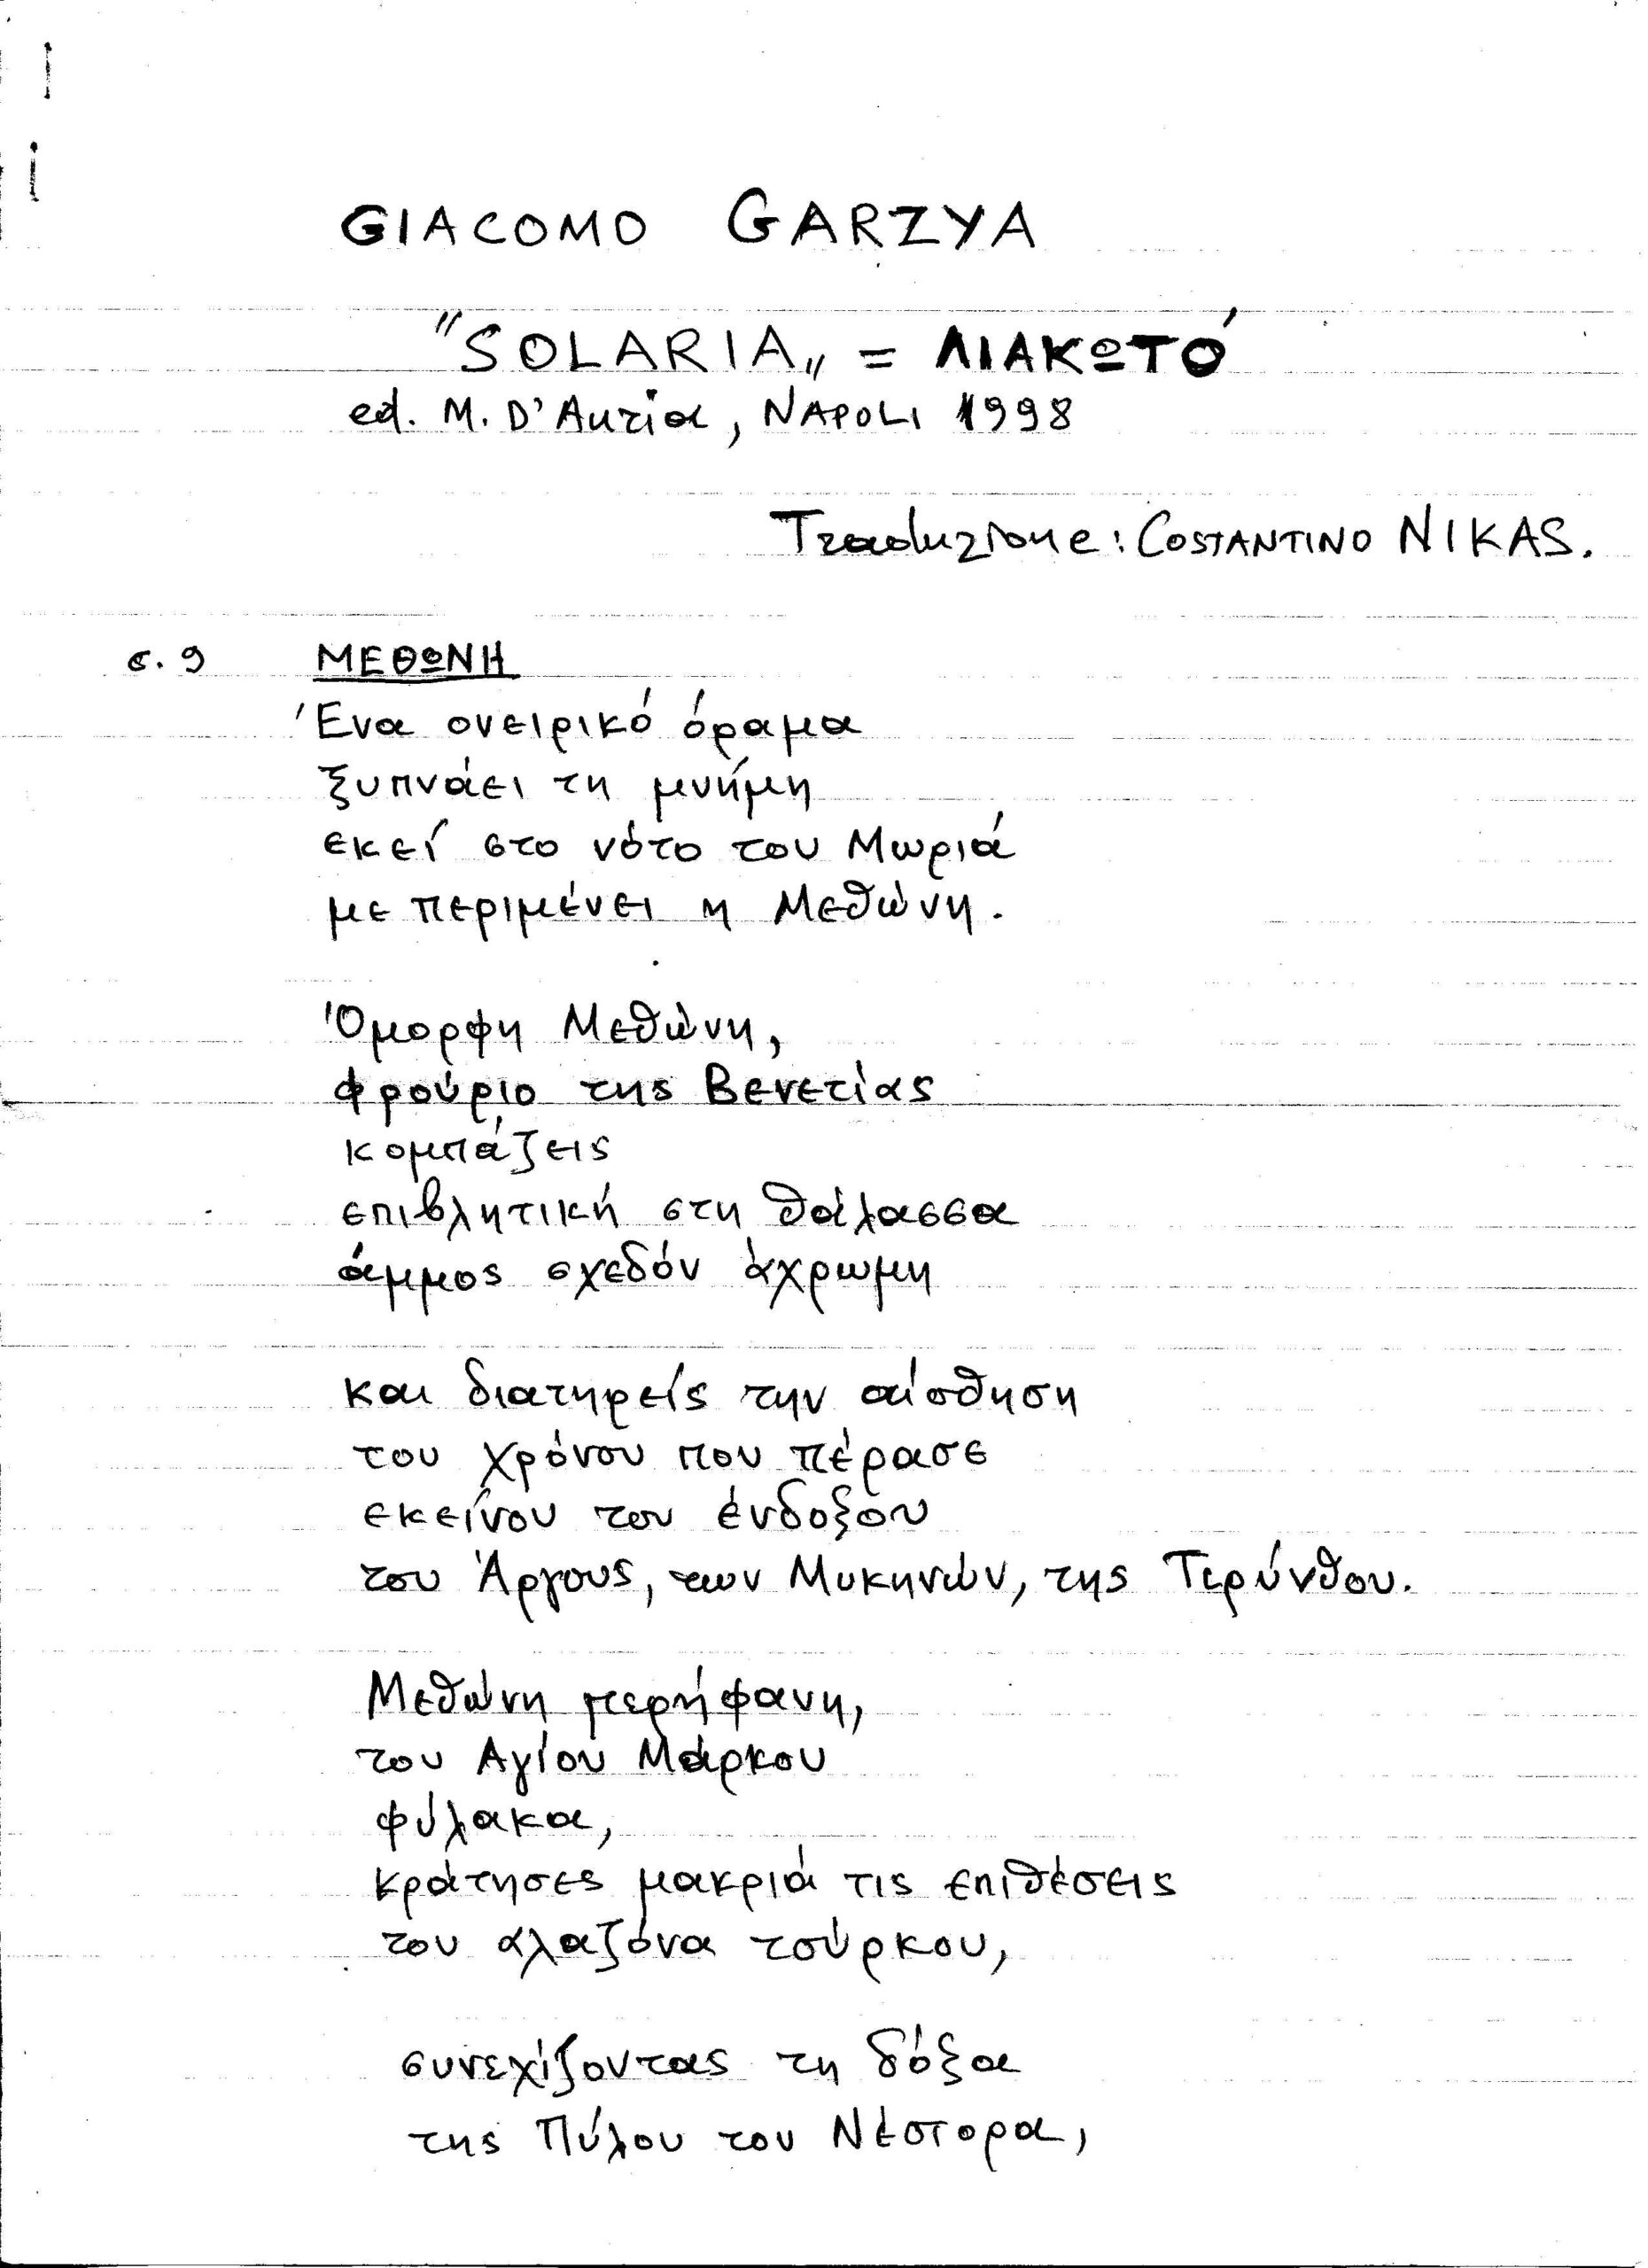 GIACOMO GARZYA
"SOLARIA„ = ΛΙΑΚΩΤΌ
ed. M. D'Auria, NAPOLI 1998
Traduzione: COSTANTINO NIKAS.
σ. 9 ΜΕΘΩΝΗ
Ένα ονειρικό όραμα
ξυπνάει τη μνήμη
εκεί στο νότο του Μωριά
με περιμένει η Μεθώνη.
Όμορφη Μεθώνη,
φρούριο της Βενετίας
κομπάζεις
επιβλητική στη θάλασσα
άμμος σχεδόν άχρωμη
και διατηρείς την αίσθηση
του χρόνου που πέρασε
εκείνου του ένδοξου
του Άργους, των Μυκηνών, της Τιρύνθου.
Μεθώνη περήφανη,
του Αγίου Μάρκου
φύλακα,
κράτησες μακριά τις επιθέσεις
του αλαζόνα τούρκου,
συνεχίζοντας τη δόξα
της Πύλου του Νέστορα,